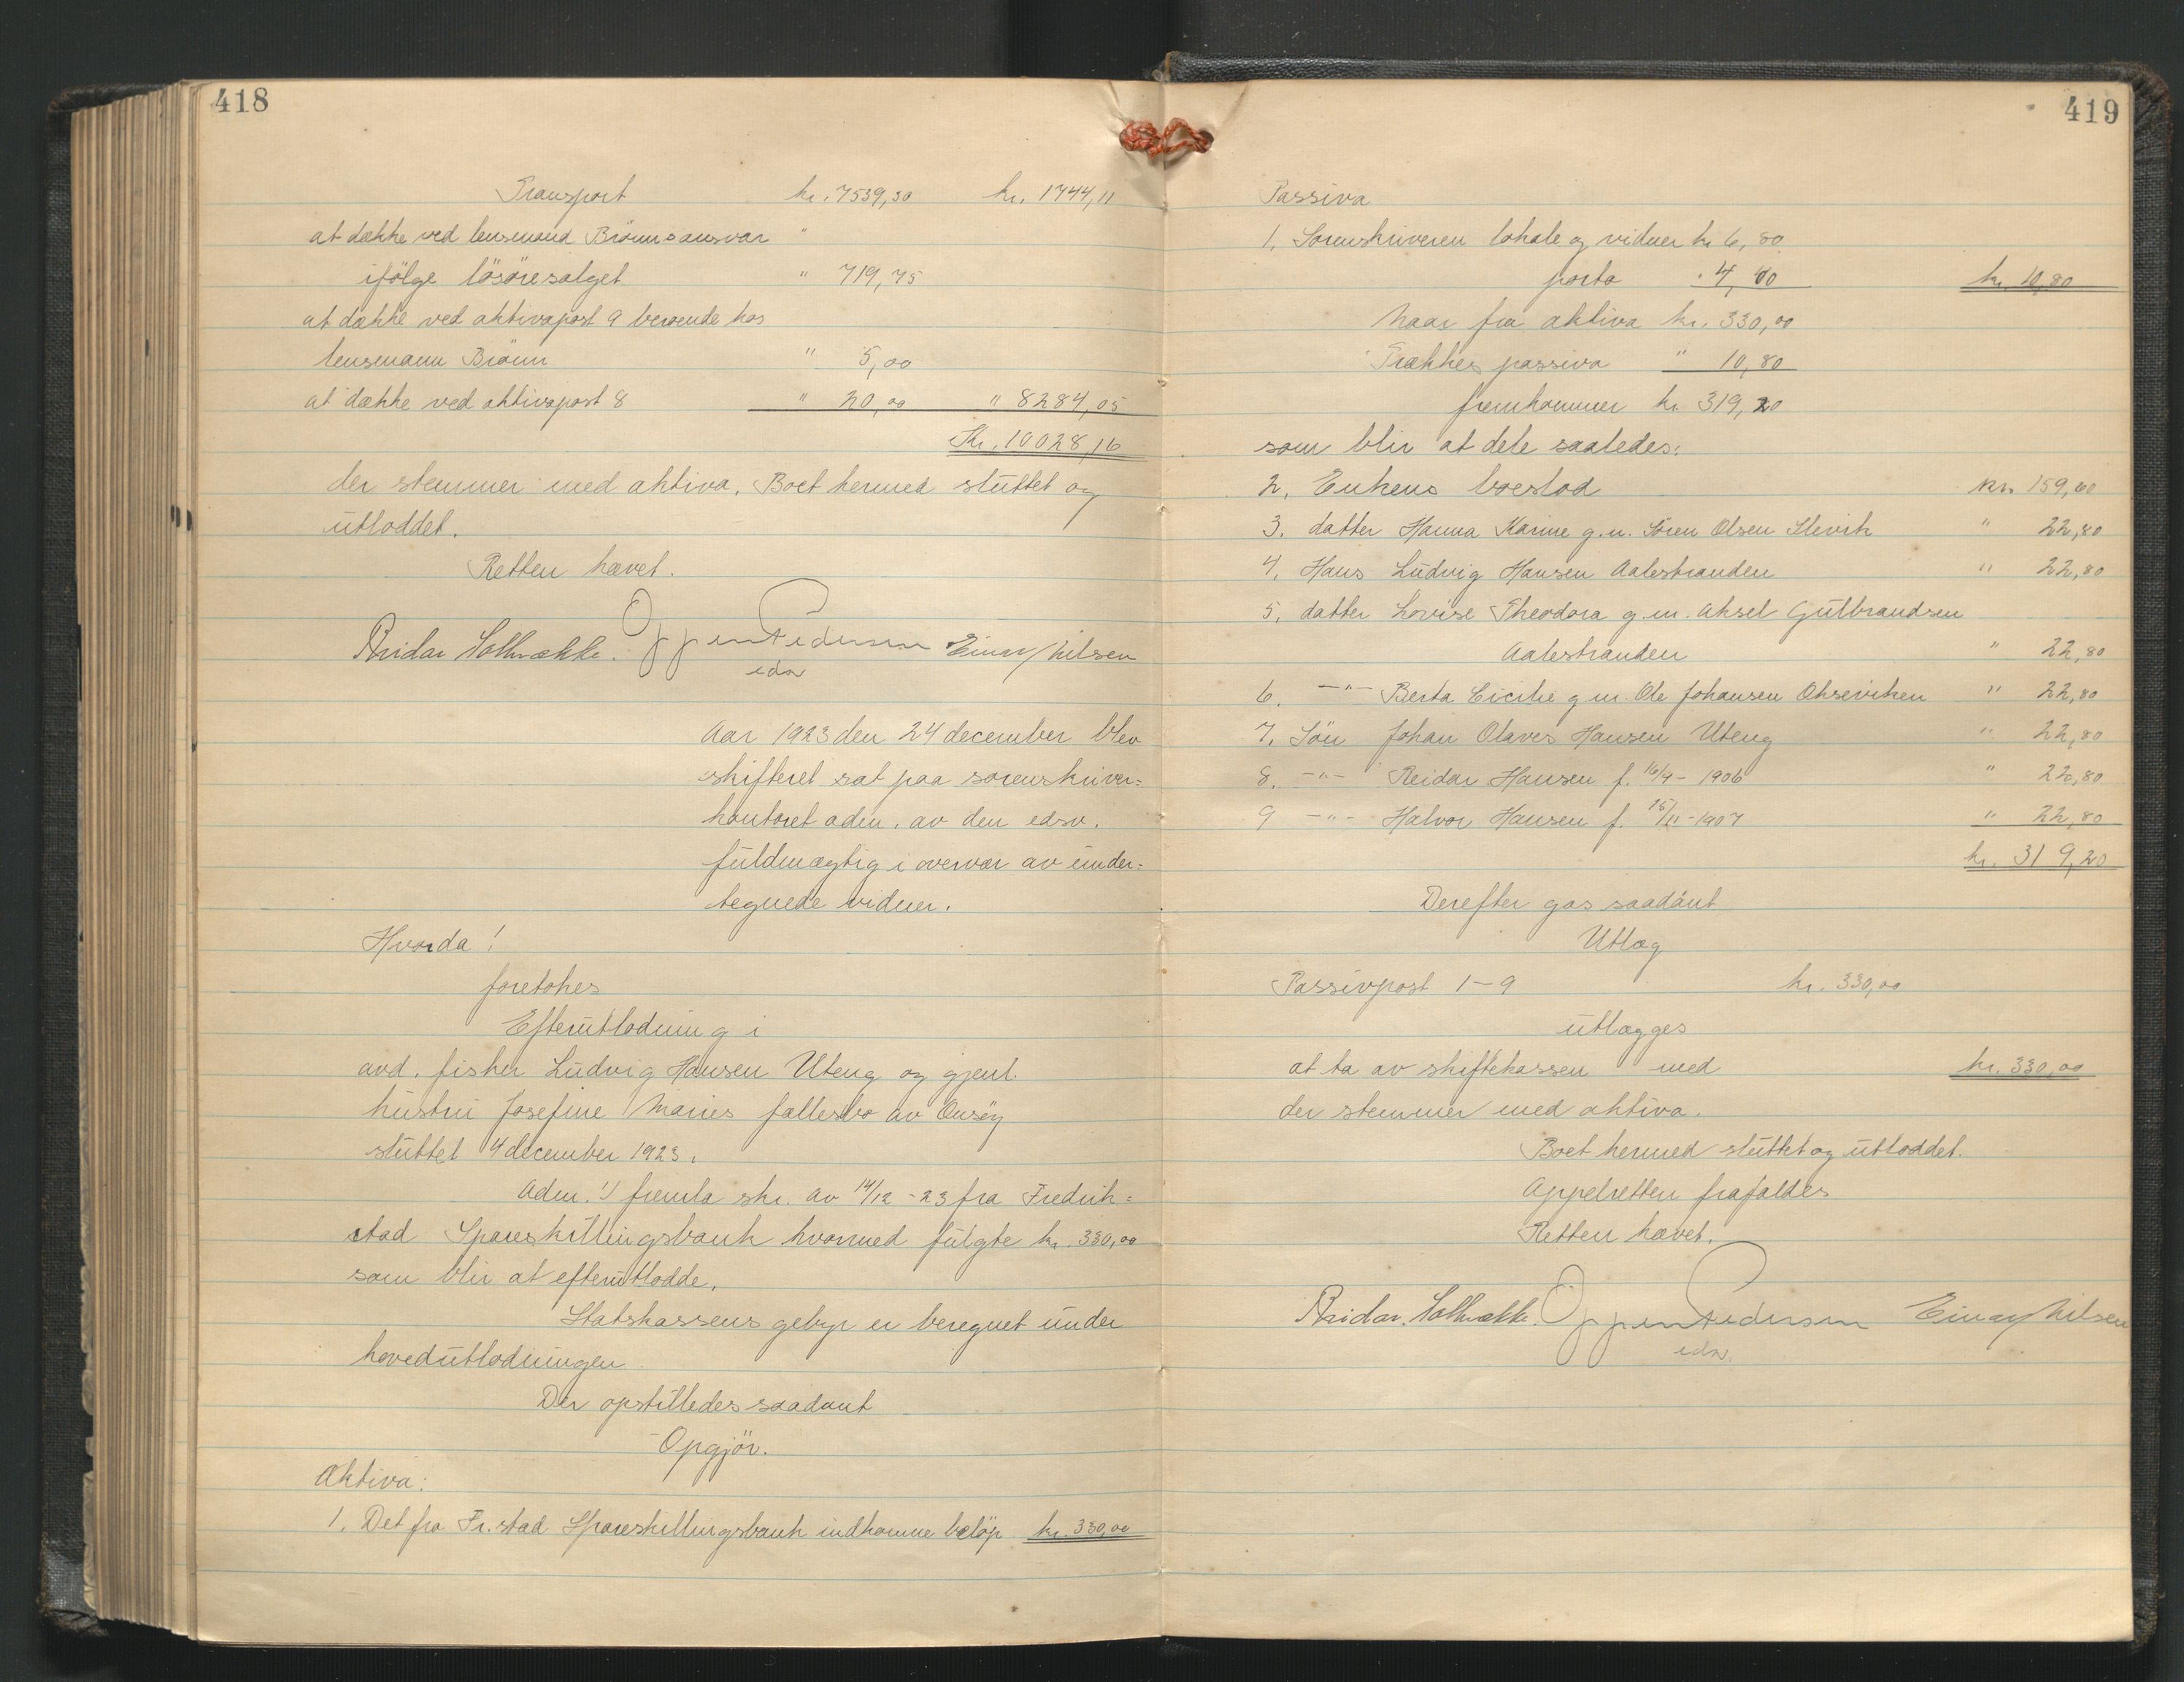 418
Transport kr. 7539,30 kr. 1744,11
at dække ved lensmand Brönns ansvar "
ifölge lösöresalget " 719,75
at dække ved aktivapost 9 beroende hos
lensmann Brönn " 5,00
at dække ved aktivapost 8 " 20,00 " 8284,05
Kr. 10028,16
der stemmer med aktiva. Boet hermed sluttet og
utloddet.
Retten hævet.
Reidar Solbrække. Oppen Pedersen Einar Nilsen
edsv
Aar 1923 den 24 december blev
skifteret sat paa sorenskriver=
kontoret adm. av den edsv.
fuldmægtig i overvær av under=
tegnede vidner.
Hvorda!
foretokes
Efterutlodning i
avd. fisker Ludvig Hansen Uteng og gjenl.
hustru Josefine Maries fællesbo av Onsöy
sluttet 4 december 1923.
Adm. 1) fremla skr. av 14/12 - 23 fra Fredrik=
stad Spareskillingsbank hvormed fulgte kr. 330,00
som blir at efterutlodde.
Statskassens gebyr er beregnet under
hovedutlodningen.
Der opstilledes saadant
Opgjör.
Aktiva:
1. Det fra Fr.stad Spareskillingsbank indkomne belöp kr. 330,00
419
Passiva
1. Sorenskriveren lokale og vidner kr 6,80
porto " 4,00 kr. 10,80
Naar fra aktiva kr. 330,00
Trækkes passiva " 10,80
fremkommer kr. 319,20
som blir at dele saaledes:
2. Enkens boeslod kr. 159,60
3. datter Hanna Karine g.m. Sören Olsen Slevik " 22,80
4. Hans Ludvig Hansen Aalestranden " 22,80
5. datter Lovise Theodora g.m. Aksel Gulbrandsen
Aalestranden " 22,80
6. -"- Berta Cicilie g.m. Ole Johansen Okseviken " 22,80
7. Sön Johan Olaves Hansen Uteng " 22,80
8. -"- Reidar Hansen f. 16/9 - 1906 " 22,80
9 -"- Halvor Hansen f. 15/11 - 1907 " 22,80
kr. 319,20
Derefter gas saadant
Utlæg
Passivpost 1-9 kr. 330,00
utlægges
at ta av skiftekassen med kr. 330,00
der stemmer med aktiva.
Boet hermed sluttet og utloddet.
Appelretten frafaldes
Retten hævet.
Reidar Solbrække. Oppen Pedersen Einar Nilsen
edsv.